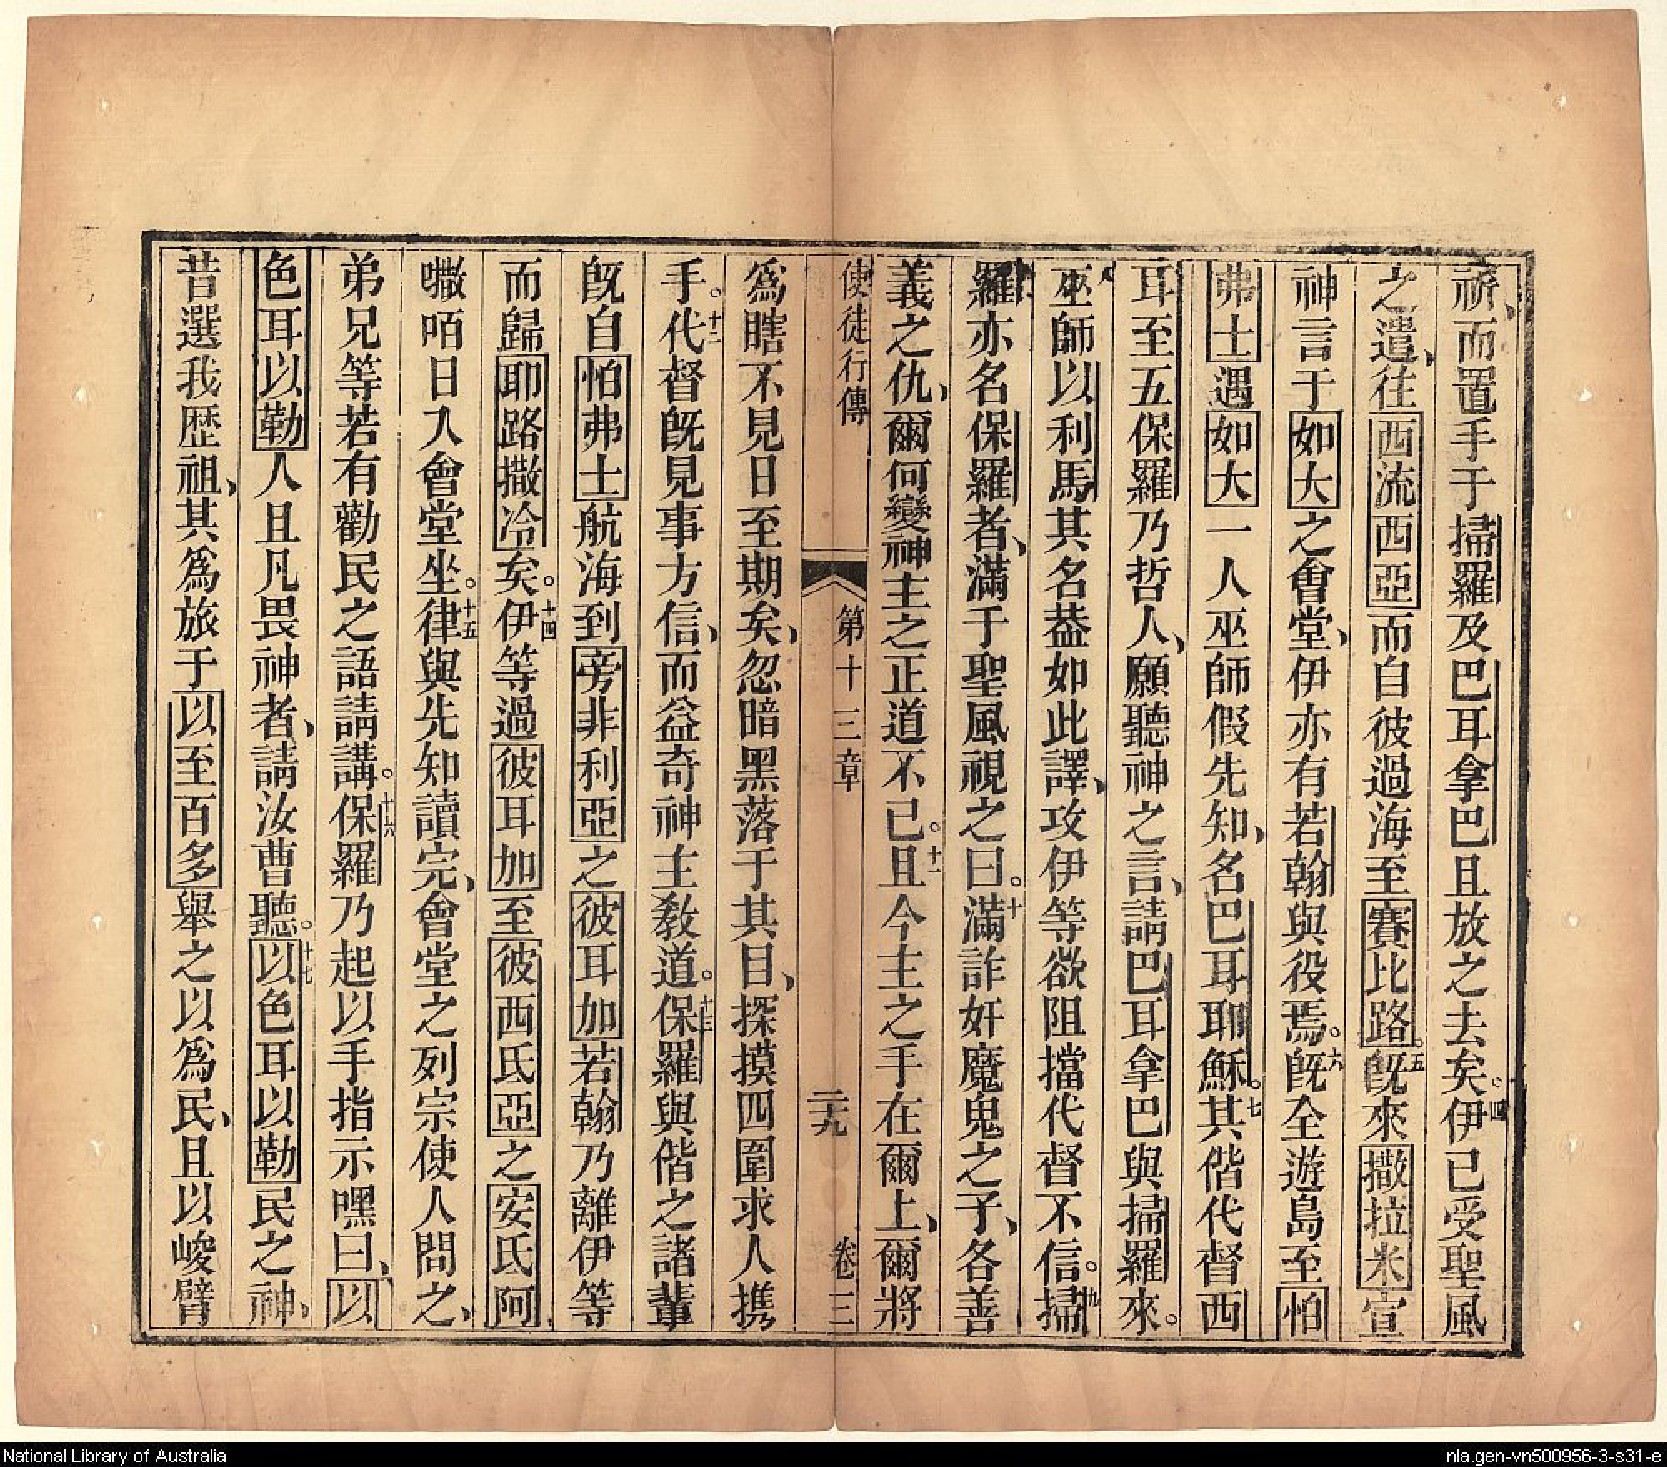 祈、而置手于掃羅及巴耳拿巴且放之去矣。四伊已受聖風
之遣、往西流西亞而自彼過海至賽比路。五旣來撒拉米宣
神言于如大之會堂、伊亦有若翰與役焉。六旣全遊島至怕
弗士遇如大一人巫師假先知、名巴耳耶穌。七其偕代督西
耳至五保羅乃哲人、願聽神之言、請巴耳拿巴與掃羅來。
八巫師以利馬其名葢如此譯、攻伊等欲阻擋代督不信。九掃
羅亦名保羅者、滿于聖風視之曰。十滿詐奸魔鬼之子、各善
義之仇、爾何變神主之正道不已。十一且今主之手在爾上、爾將
使徒行傳 第十三章 二十九 卷三
爲瞎不見日至期矣、忽暗黑落于其目、探摸四圍求人携
手。十二代督旣見事方信、而益奇神主教道。十三保羅與偕之諸輩
旣自怕弗士航海到旁非利亞之彼耳加若翰乃離伊等
而歸耶路撒冷矣。十四伊等過彼耳加至彼西氏亞之安氏阿
㘔咟日入會堂坐。十五律與先知讀完、會堂之列宗使人問之、
弟兄等若有勸民之語請講。十六保羅乃起以手指示嘿曰、以
色耳以勒人且凡畏神者、請汝曹聽。十七以色耳以勒民之神、
昔選我歷祖、其爲旅于以至百多舉之以爲民、且以峻臂
National Library of Australia
nla.gen-vn500956-3-s31-e